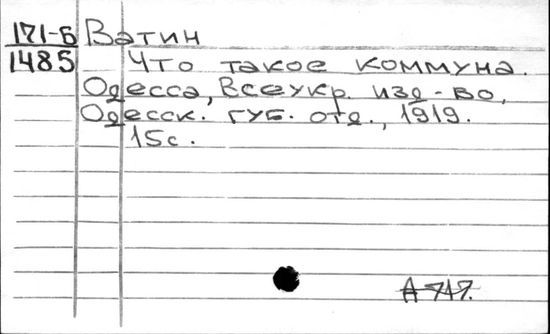 171-Б Ватин
1485 Что такое коммуна.
Одесса, Всеукр. изд-во,
Одесск. губ. отд., 1919.
15с.
А 717.